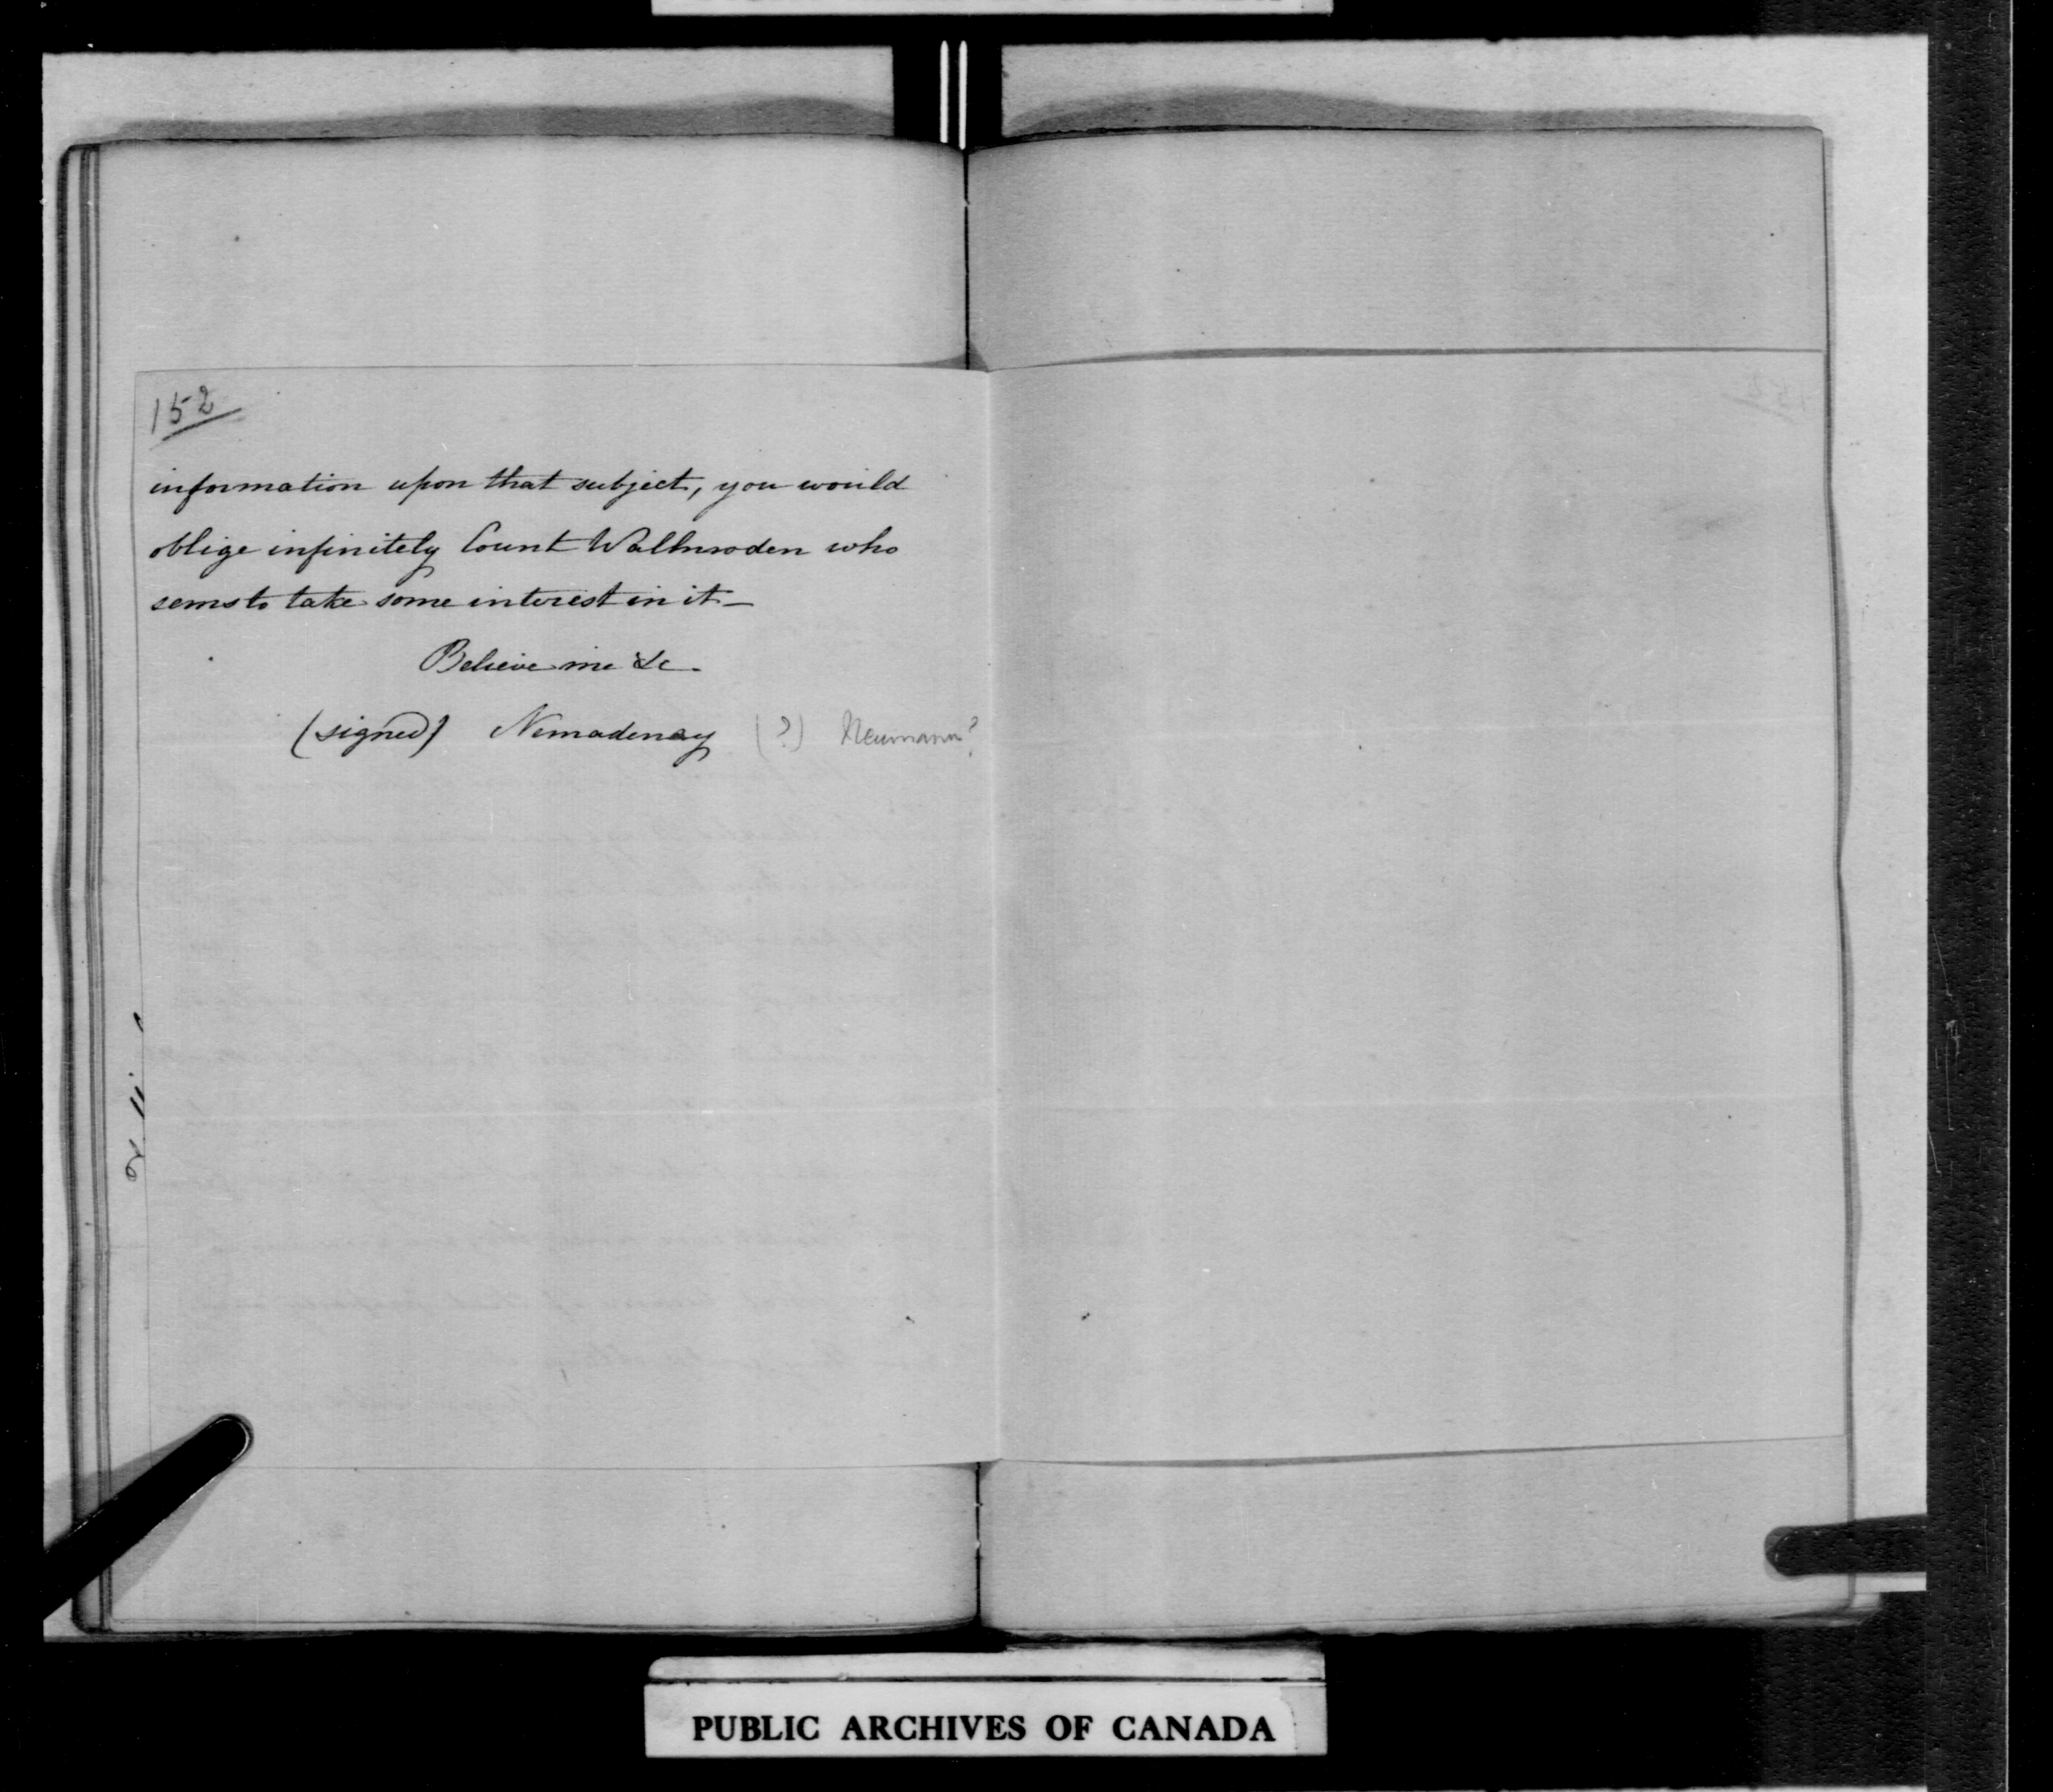 152
information upon that subject, you would
oblige infinitely Count Wallmoden who
sems to take some interest in it—
Believe me &c.
(signed) Nemadenay (?) Neumann?
PUBLIC ARCHIVES OF CANADA